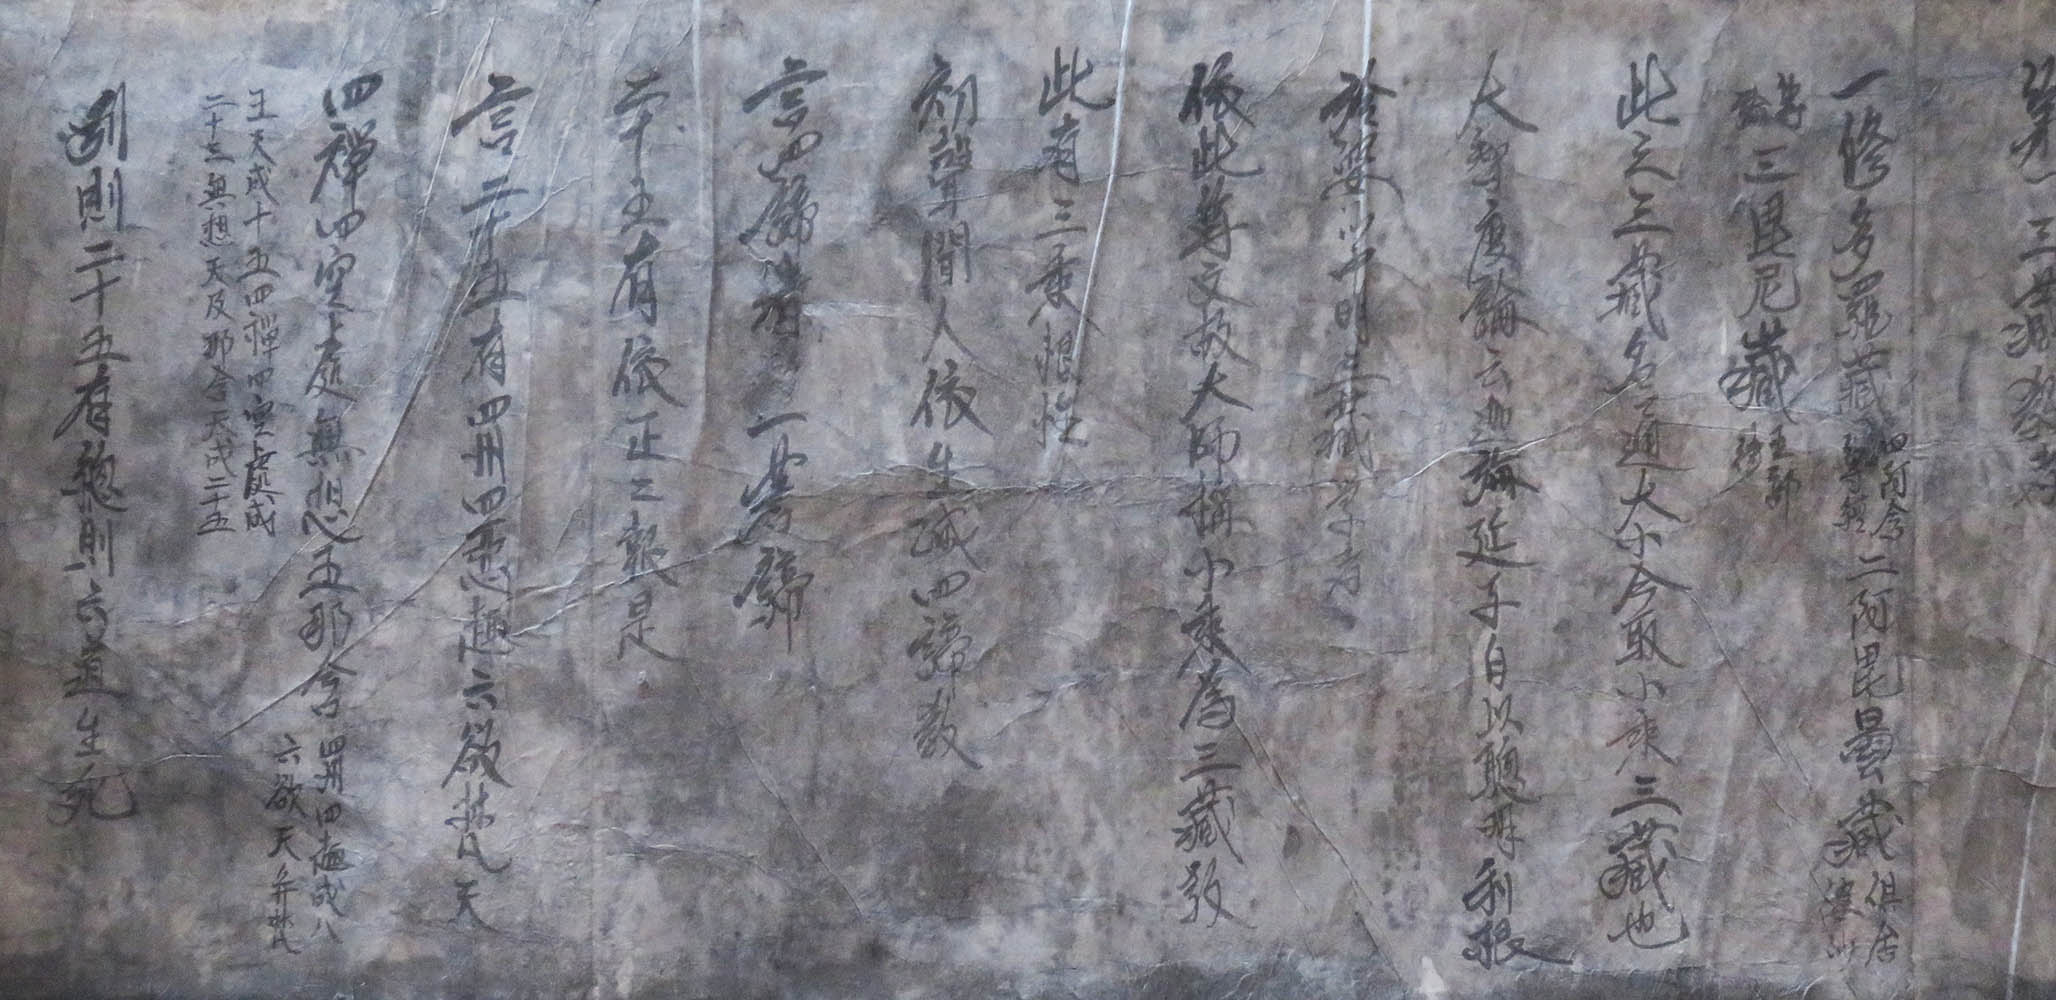 第一三藏教者
一修多羅藏 四阿含等經 二阿毘曇藏 俱舍婆沙
等論 三毘尼藏 五部律
此之三藏名通大小今取小乘三藏也
大智度論云迦旃延子自以聰明利根
於婆沙中明三藏
依此等文故大師稱小乘為三藏教
此有三乘根性
初聲聞人依生滅四諦教
言四諦者一苦諦
二十五有依正二報是
言二十五有四州四惡趣六欲梵天
四禪四空處無想五那含 四州四趣成八
六欲天并梵
王天成十五四禪四空處成
二十三無想天及那含天成二十五
別則二十五有總則六道生死